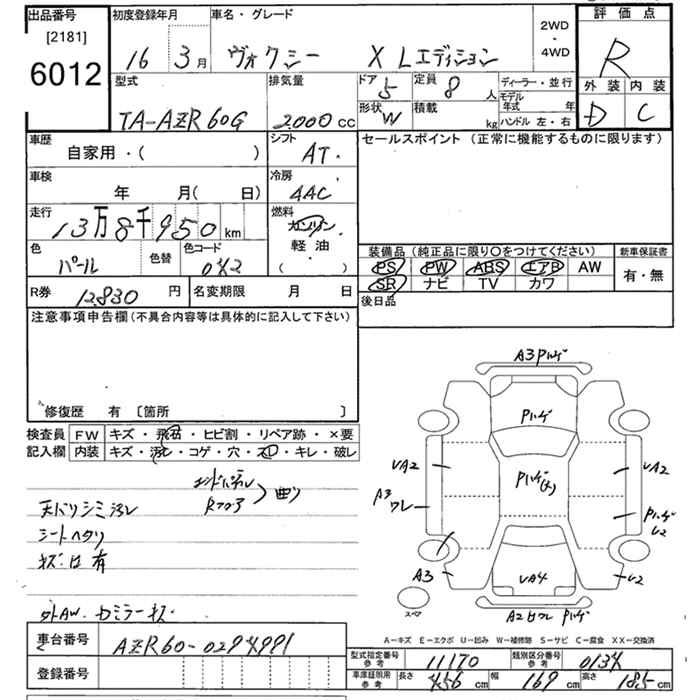 出品番号 初度登録年月 車名・グレード 2WD ・ 4WD 評価点
[2181]
6012 16 3月 ヴォクシー X Lエディション R
型式 排気量 ドア 定員 ディーラー・並行 外装 内装
TA-AZR60G 2,000cc 5 8人 モデル年式 年 D C
形状 W 積載 kg ハンドル 左・右
車歴 シフト セールスポイント (正常に機能するものに限ります)
自家用・( ) AT
車検 冷房
年 月( 日) AAC
走行 燃料
13万8千950km ガソリン
色 色替 色コード 軽油
パール 042 ・( )
装備品 (純正品に限り〇をつけてください) 新車保証書
PS PW ABS エアB AW 有・無
SR ナビ TV カワ
R券 12,830円 名変期限 月 日 後日品
注意事項申告欄 (不具合内容等は具体的に記入して下さい)
修復歴 有 〔箇所 〕
検査員 FW キズ・飛石・ヒビ割・リペア跡・×要
記入欄 内装 キズ・汚れ・コゲ・穴・スレ・キレ・破レ
エンドパネル
Rフロア 曲り
天バリシミ汚レ
シートヘタリ
キズ凹有
外AW・ドミラーキズ
A3Pハゲ
Pハゲ
UA2 Pハゲ UA2
A3 ワレ Pハゲ U2
A3 UA4 U2
スペア A2凹ワレ Pハゲ
A－キズ E－エクボ U－凹み W－補修跡 S－サビ C－腐食 XX－交換済
車台番号 AZR60-0294991
登録番号
型式指定番号 参考 11170 類別区分番号 参考 0134
車庫証明用 参考 長さ 456cm 幅 169cm 高さ 185cm